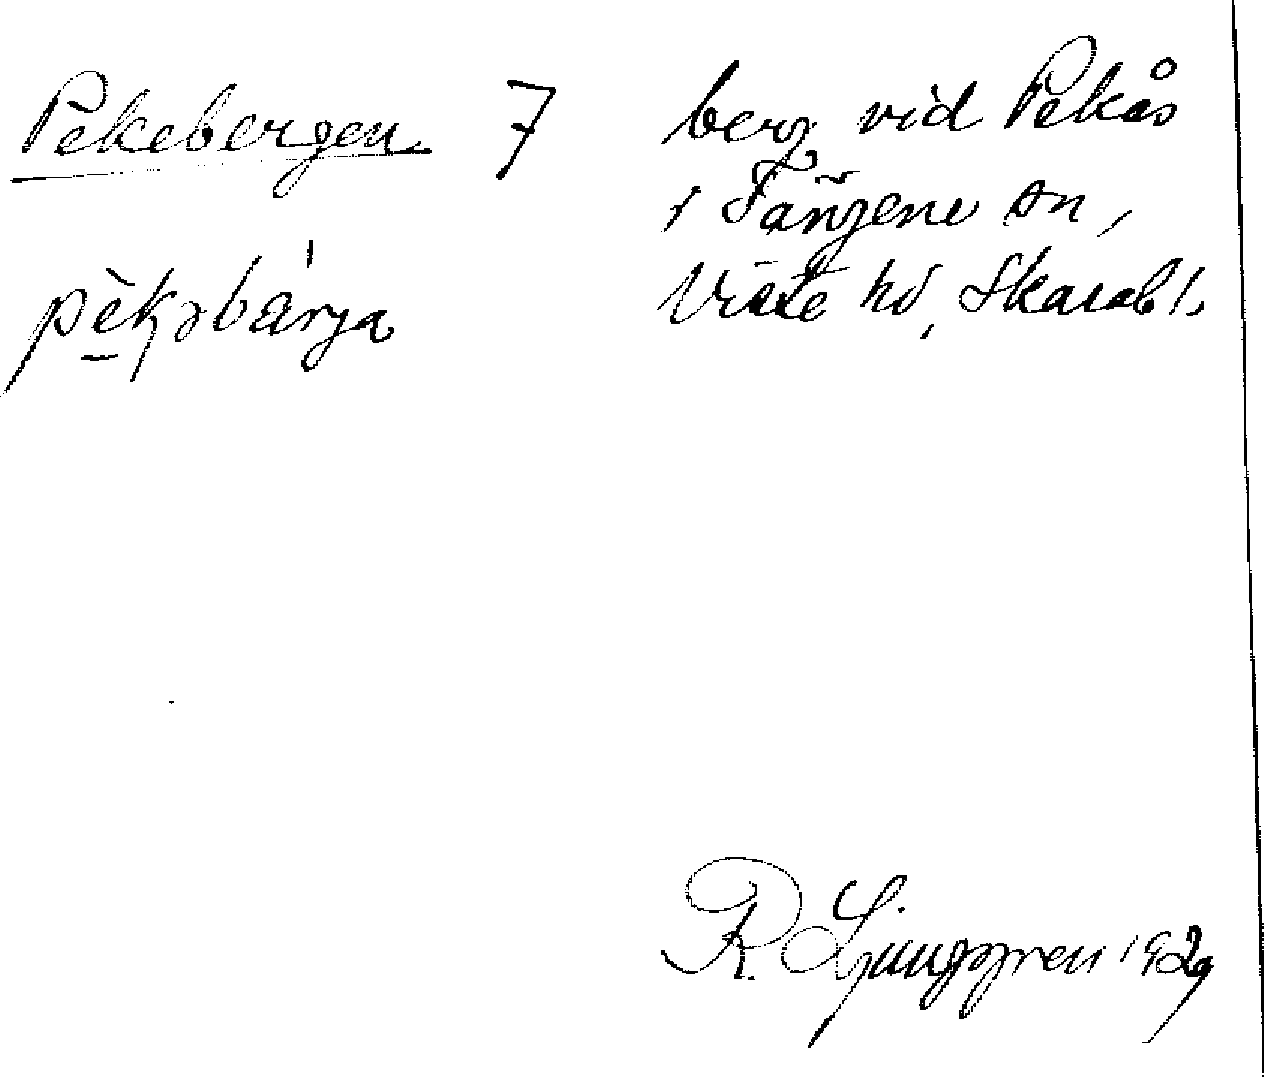 Pekebergen 7
pèkəbárja
berg vid Pekås
i Fångene sn,
Viste hd, Skarabl.
R. Ljunggren 1929